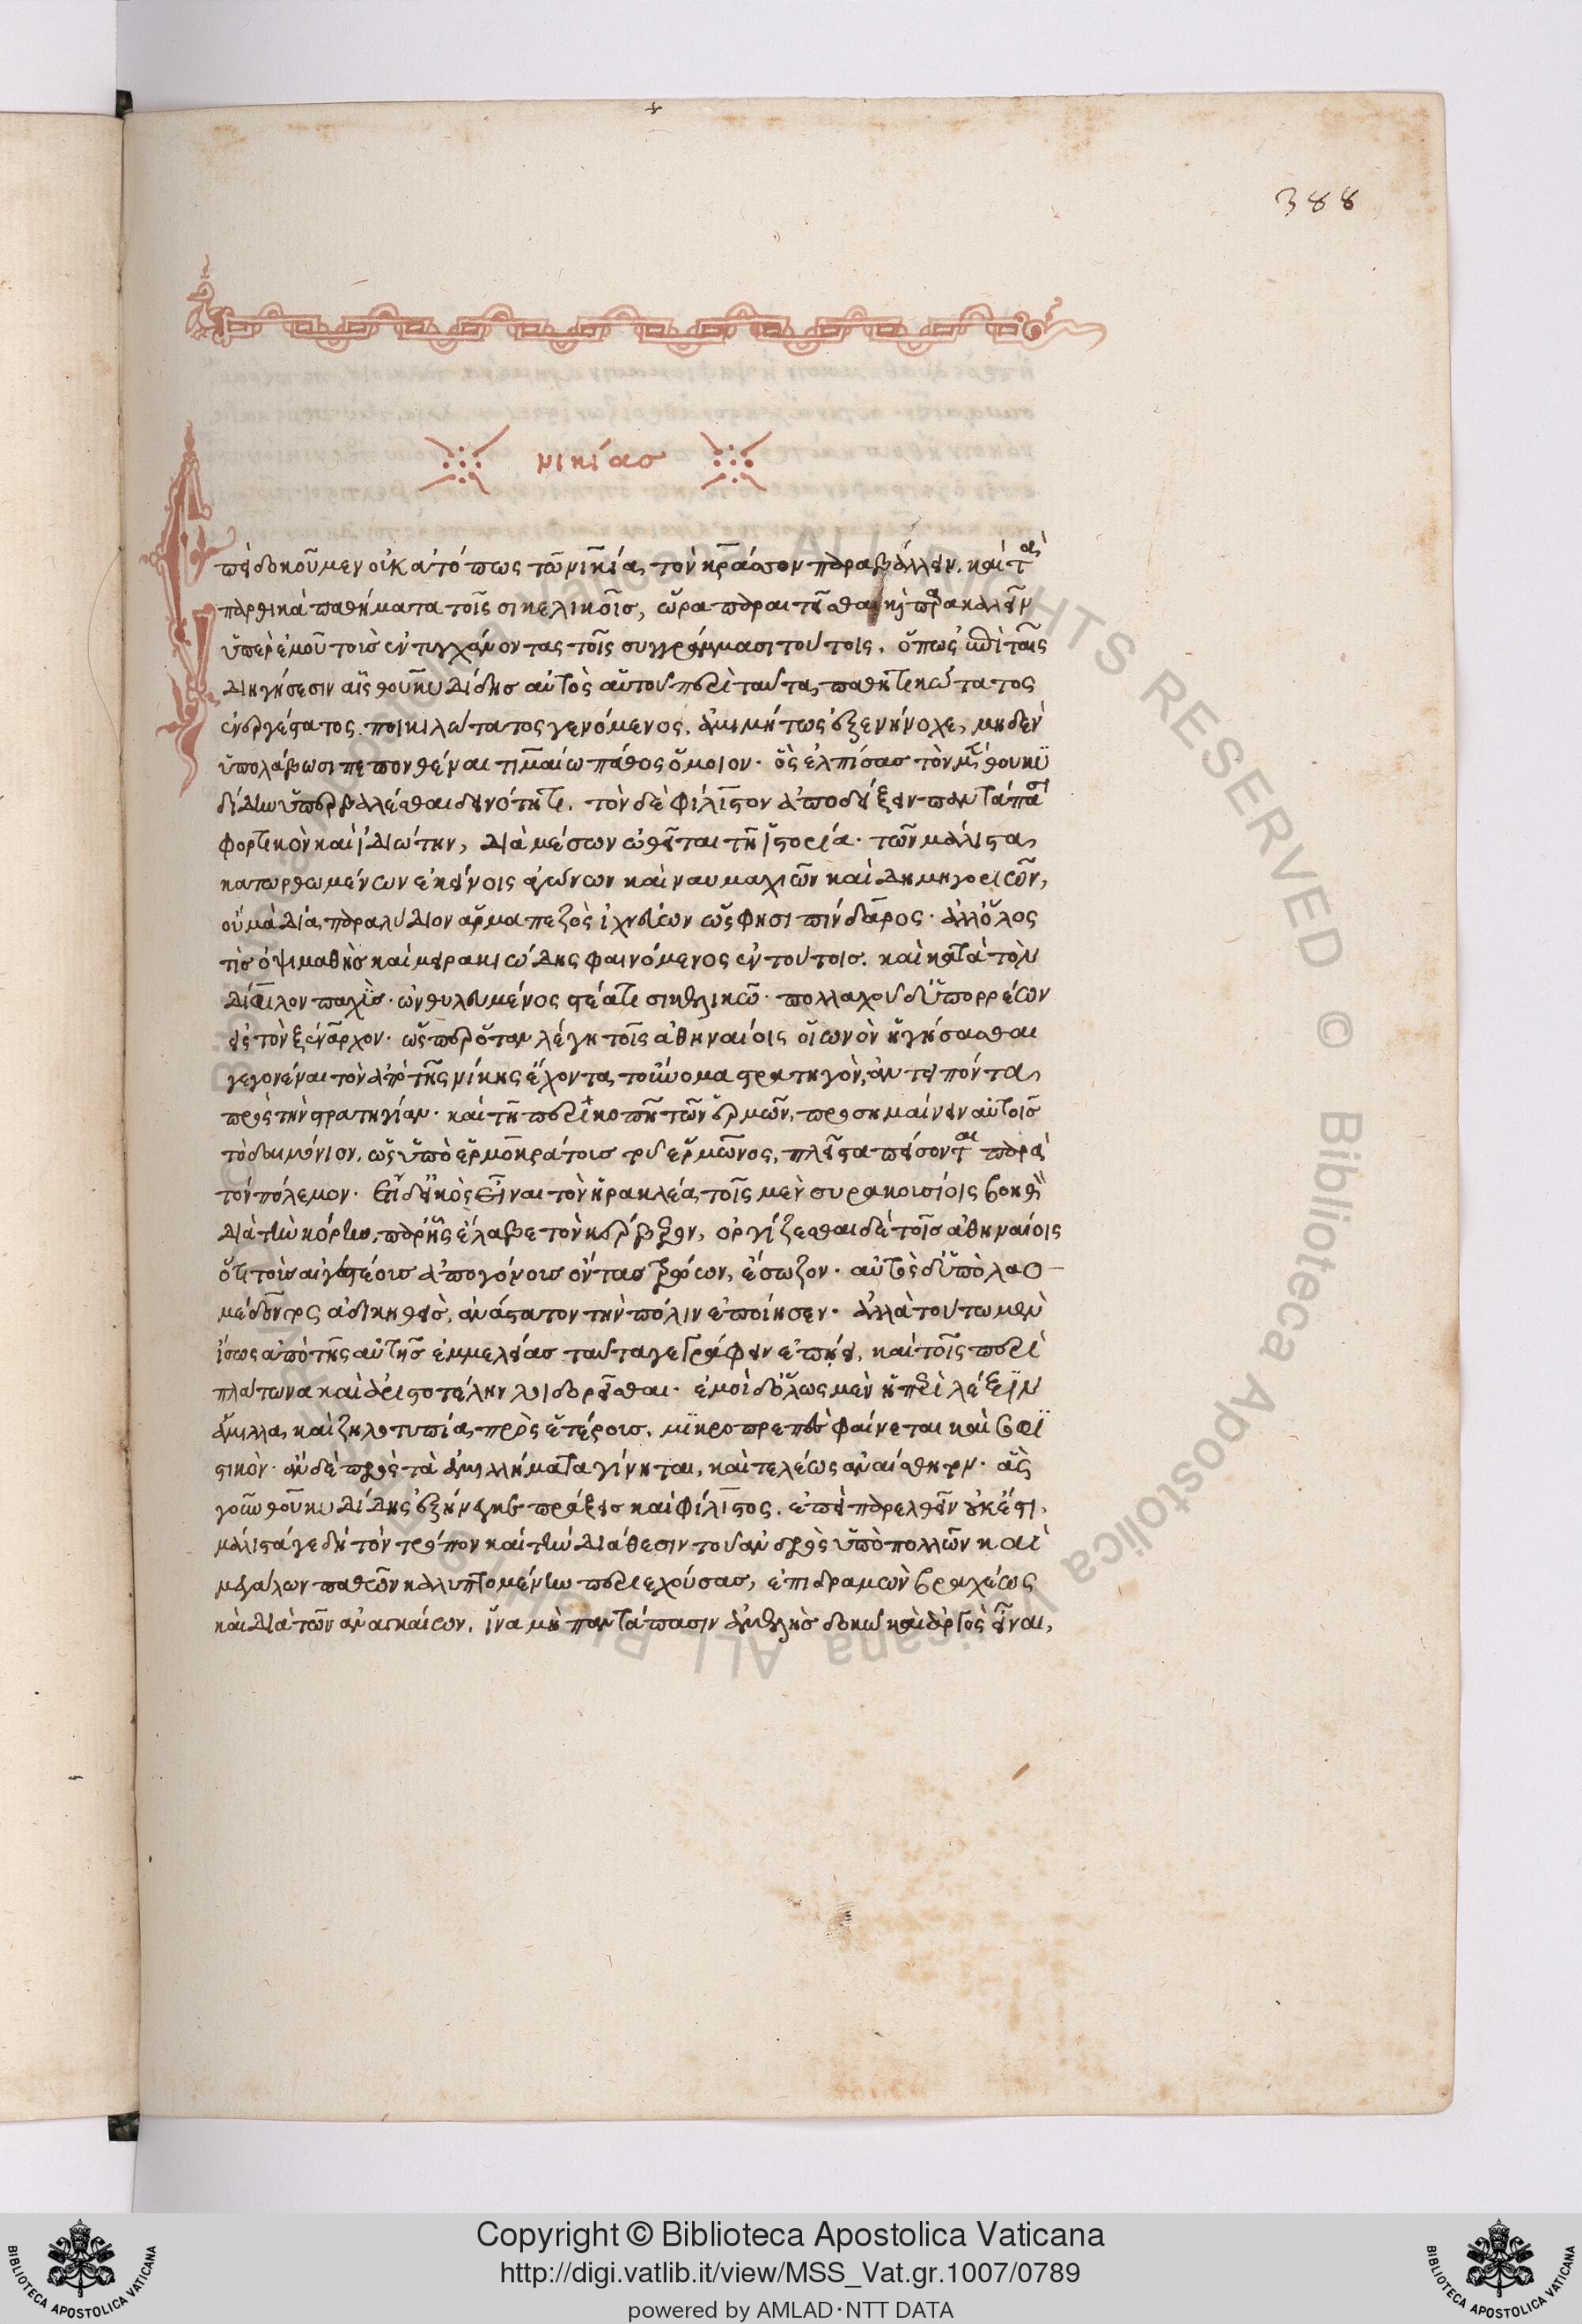 388
νικίας
Ἐπεὶ δοκοῦμεν οὐκ ἀτόπως τῶ νικία τὸν κράσσον παραβάλλειν, καὶ τὰ
παρθικὰ παθήματα τοῖς σικελικοῖς, ὥρα παραιτεῖσθαι καὶ παρακαλεῖν
ὑπὲρ ἐμοῦ τοὺς ἐντυγχάνοντας τοῖς συγγράμμασι τούτοις, ὅπως ἐπὶ ταῖς
διηγήσεσιν αἷς θουκυδίδης αὐτὸς αὑτοῦ περὶ ταῦτα παθητικώτατος
ἐνεργέστατος ποικιλώτατος γενόμενος, ἀμιμήτως ἐξενήνοχε, μηδὲν
ὑπολάβωσι πεπονθέναι τιμαίω πάθος ὅμοιον· ὃς ἐλπίσας τὸν μὲν θουκυ
δίδην ὑπερβαλέσθαι δεινότητι, τὸν δὲ φίλιστον ἀποδείξειν παντάπασι
φορτικὸν καὶ ἰδιώτην, διὰ μέσων ὠθεῖται τῆ ἱστορία τῶν μάλιστα
κατωρθωμένων ἐκείνοις ἀγώνων καὶ ναυμαχιῶν καὶ δημηγοριῶν,
οὐ μὰ δία παρὰ λύδιον ἅρμα πεζὸς ἰχνεύων ὥς φησι πίνδαρος· ἀλλ' ὅλος
τὶς ὀψιμαθὴς καὶ μειρακιώδης φαινόμενος ἐν τούτοις, καὶ κατὰ τὸν
δίφιλον παχὺς ὠνθυλευμένος στέατι σικελικῶ· πολλαχοῦ δ' ὑπορρέων
εἰς τὸν ξέναρχον· ὥσπερ ὅταν λέγη τοῖς ἀθηναίοις οἰωνὸν ἡγήσασθαι
γεγονέναι τὸν ἀπὸ τῆς νίκης ἔχοντα τοὔνομα στρατηγὸν, ἀντειπόντα
πρὸς τὴν στρατηγίαν· καὶ τῆ περικοπῆ τῶν ἑρμῶν, προσημαίνειν αὐτοῖς
τὸ δαιμόνιον, ὡς ὑπὸ ἑρμοκράτους τοῦ ἕρμωνος, πλεῖστα πείσονται παρὰ
τὸν πόλεμον· ἔτι δ' εἰκὸς εἶναι τὸν ἡρακλέα τοῖς μὲν συρακουσίοις βοηθεῖν
διὰ τὴν κόρην, παρ' ἧς ἔλαβε τὸν κέρβερον, ὀργίζεσθαι δὲ τοῖς ἀθηναίοις
ὅτι τοὺς αἰγεστέους ἀπογόνους ὄντας τρώων, ἔσωζον· αὐτὸς δ' ὑπὸ λαο
μέδοντος ἀδικηθεὶς, ἀνάστατον τὴν πόλιν ἐποίησεν· ἀλλὰ τούτω μὲν
ἴσως ἀπὸ τῆς αὐτῆς ἐμμελείας ταῦτά τε γράφειν ἐπήει, καὶ τοῖς περὶ
πλάτωνα καὶ ἀριστοτέλην λοιδορεῖσθαι· ἐμοὶ δ' ὅλως μὲν ἡ περὶ λέξιν
ἅμιλλα καὶ ζηλοτυπία πρὸς ἑτέρους, μικροπρεπὲς φαίνεται καὶ σοφι
στικὸν· ἂν δὲ πρὸς τὰ ἀμίμητα γίνηται, καὶ τελέως ἀναίσθητον· ἃς
γοῦν θουκυδίδης ἐξήνεγκε πράξεις καὶ φίλιστος, ἐπεὶ παρελθεῖν οὐκ ἔστι,
μάλιστά γε δὴ τὸν τρόπον καὶ τὴν διάθεσιν τοῦ ἀνδρὸς ὑπὸ πολλῶν καὶ
μεγάλων παθῶν καλυπτομένην περιεχούσας, ἐπιδραμὼν βραχέως
καὶ διὰ τῶν ἀναγκαίων, ἵνα μὴ παντάπασιν ἀμελὴς δοκῶ καὶ ἀργὸς εἶναι,
Copyright © Biblioteca Apostolica Vaticana
http://digi.vatlib.it/view/MSS_Vat.gr.1007/0789
powered by AMLAD·NTT DATA
BIBLIOTECA APOSTOLICA VATICANA
BIBLIOTECA APOSTOLICA VATICANA